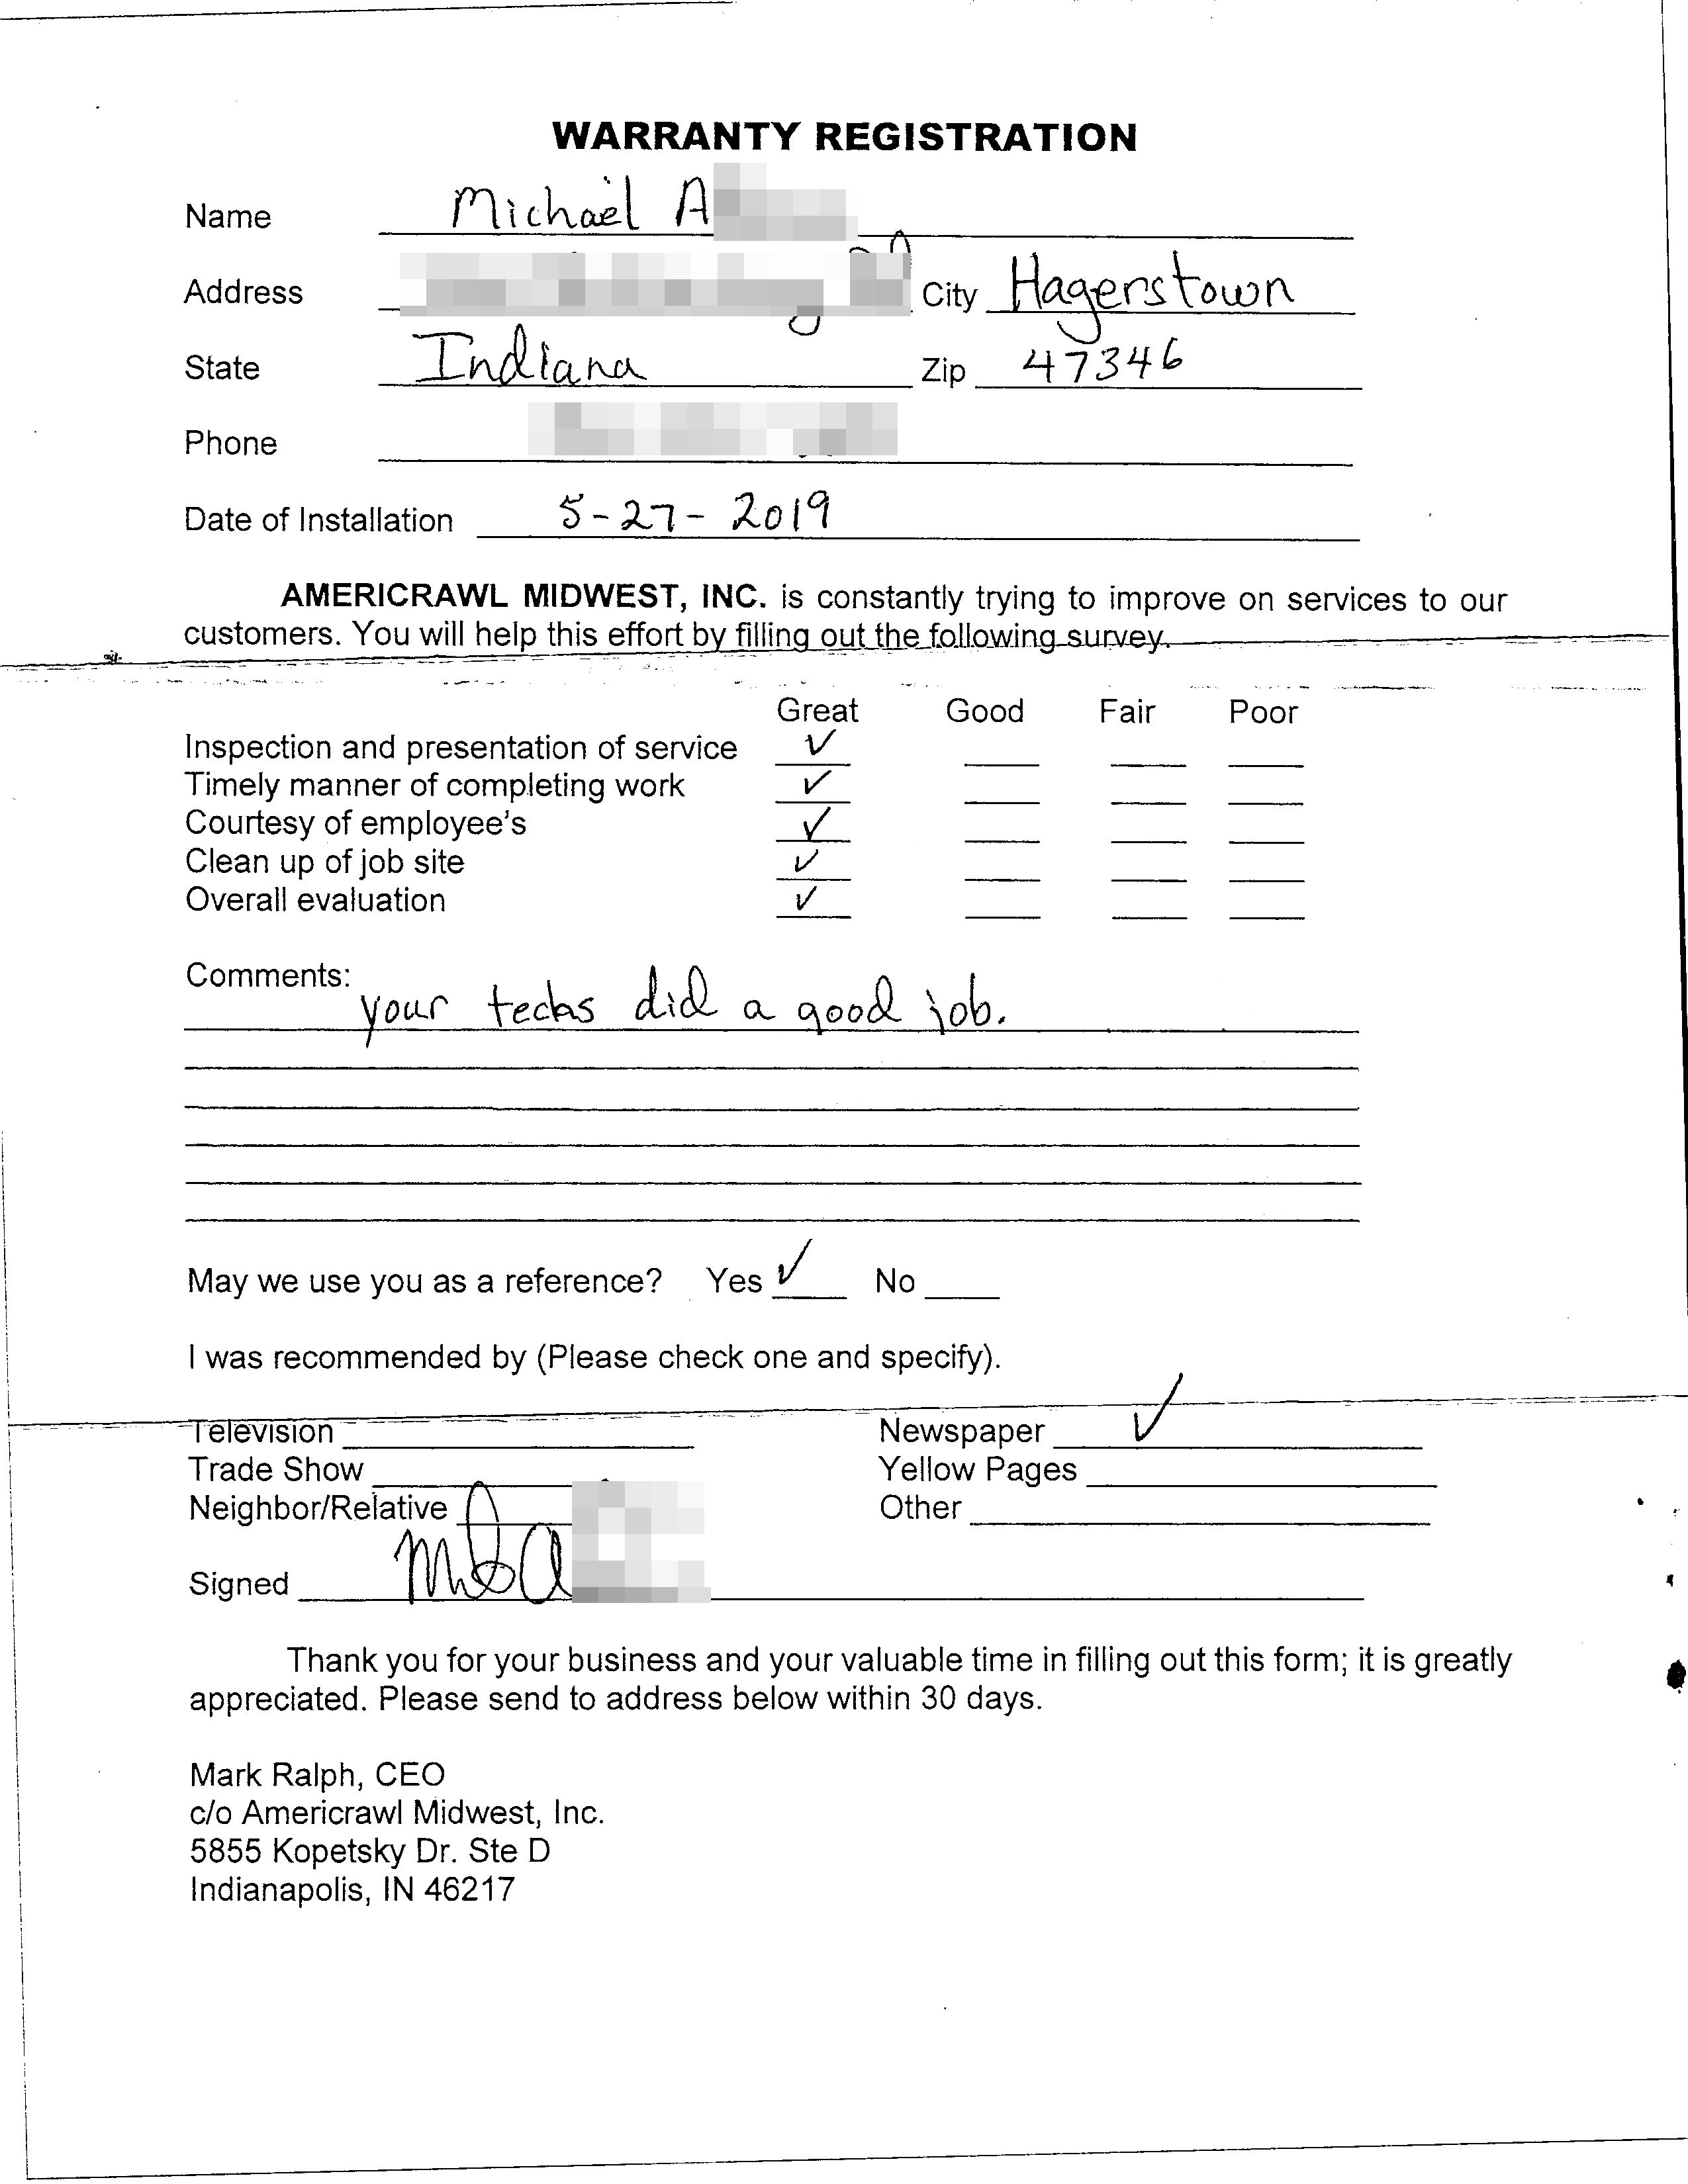 WARRANTY REGISTRATION
Name Michael A
Address City Hagerstown
State Indiana Zip 47346
Phone
Date of Installation 5-27-2019
AMERICRAWL MIDWEST, INC. is constantly trying to improve on services to our
customers. You will help this effort by filling out the following survey.
Great Good Fair Poor
Inspection and presentation of service ✓
Timely manner of completing work ✓
Courtesy of employee's ✓
Clean up of job site ✓
Overall evaluation ✓
Comments:
your techs did a good job.
May we use you as a reference? Yes ✓ No
I was recommended by (Please check one and specify).
Television Newspaper ✓
Trade Show Yellow Pages
Neighbor/Relative Other
Signed
Thank you for your business and your valuable time in filling out this form; it is greatly
appreciated. Please send to address below within 30 days.
Mark Ralph, CEO
c/o Americrawl Midwest, Inc.
5855 Kopetsky Dr. Ste D
Indianapolis, IN 46217